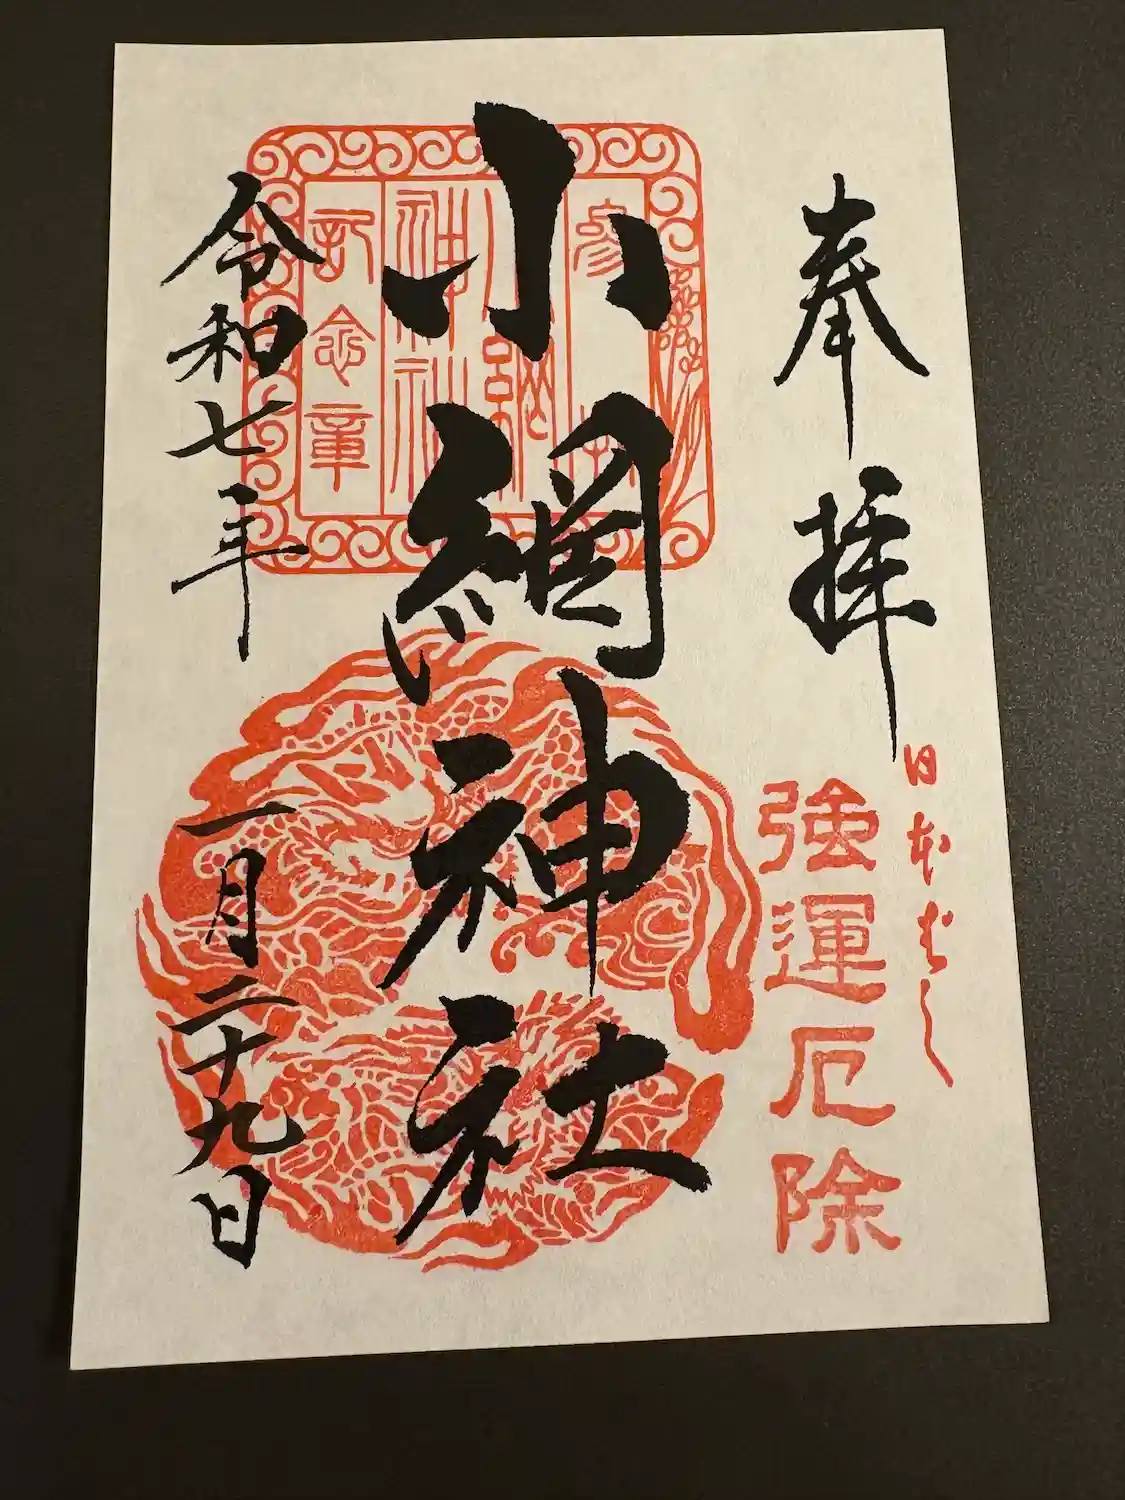 奉拝
日本ばし
強運厄除
小網神社
参拝
小網
神社
記念章
令和七年
一月二十九日